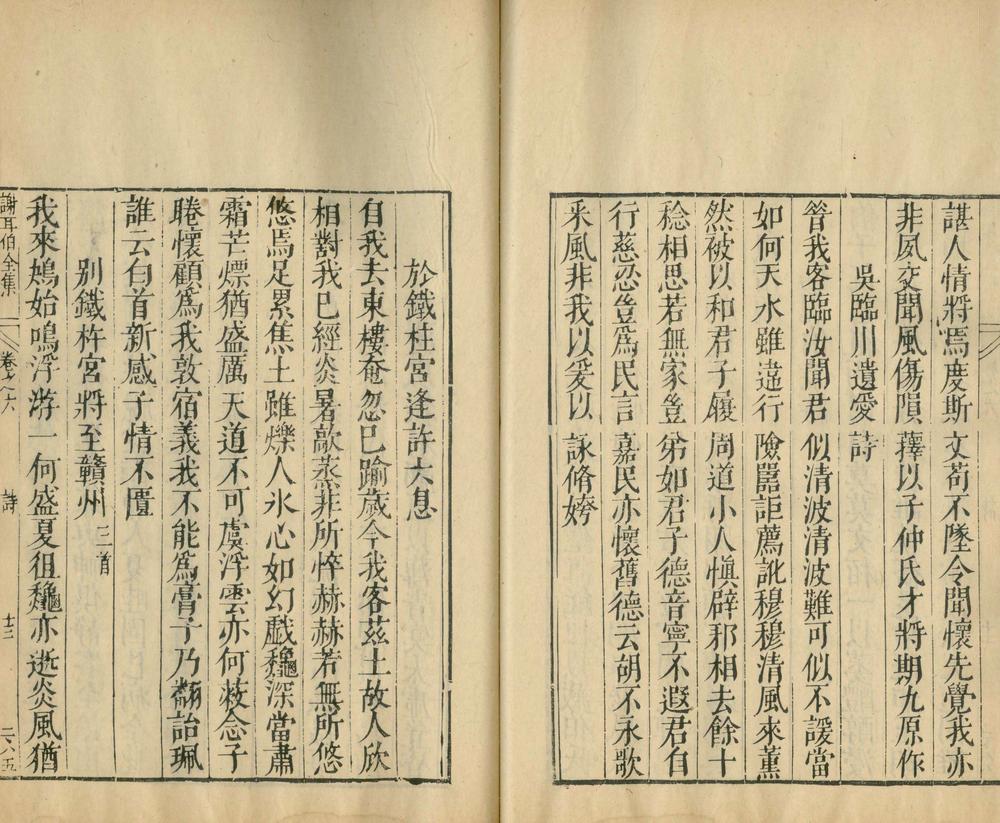 諶人情將焉度斯文苟不墜令聞懷先覺我亦
非夙交聞風傷隕蘀以子仲氏才將期九原作
吳臨川遺愛詩
管我客臨汝聞君似清波清波難可似不諼當
如何天水雖違行險嚚詎薦訛穆穆清風來薰
然被以和君子履周道小人愼辟邪相去餘十
稔相思若無家豈弟如君子德音寧不遐君自
行慈忍豈爲民言嘉民亦懷舊德云胡不永歌
采風非我以爰以詠脩姱
於鐵柱宮逢許大息
自我去東樓奄忽已踰歲今我客茲土故人欣
相對我已經炎暑歊蒸非所悴赫赫若無所悠
悠焉足累焦土雖爍人氷心如幻戲龝深當肅
霜芒熛猶盛厲天道不可虞浮雲亦何蔽念子
睠懷顧爲我敦宿義我不能爲膏子乃翻詒珮
誰云白首新感子情不匱
別鐵柱宮將至贛州三首
我來鴂始鳴浮游一何盛夏徂龝亦逝炎風猶
謝耳伯全集
卷之六
詩
十三
二八五